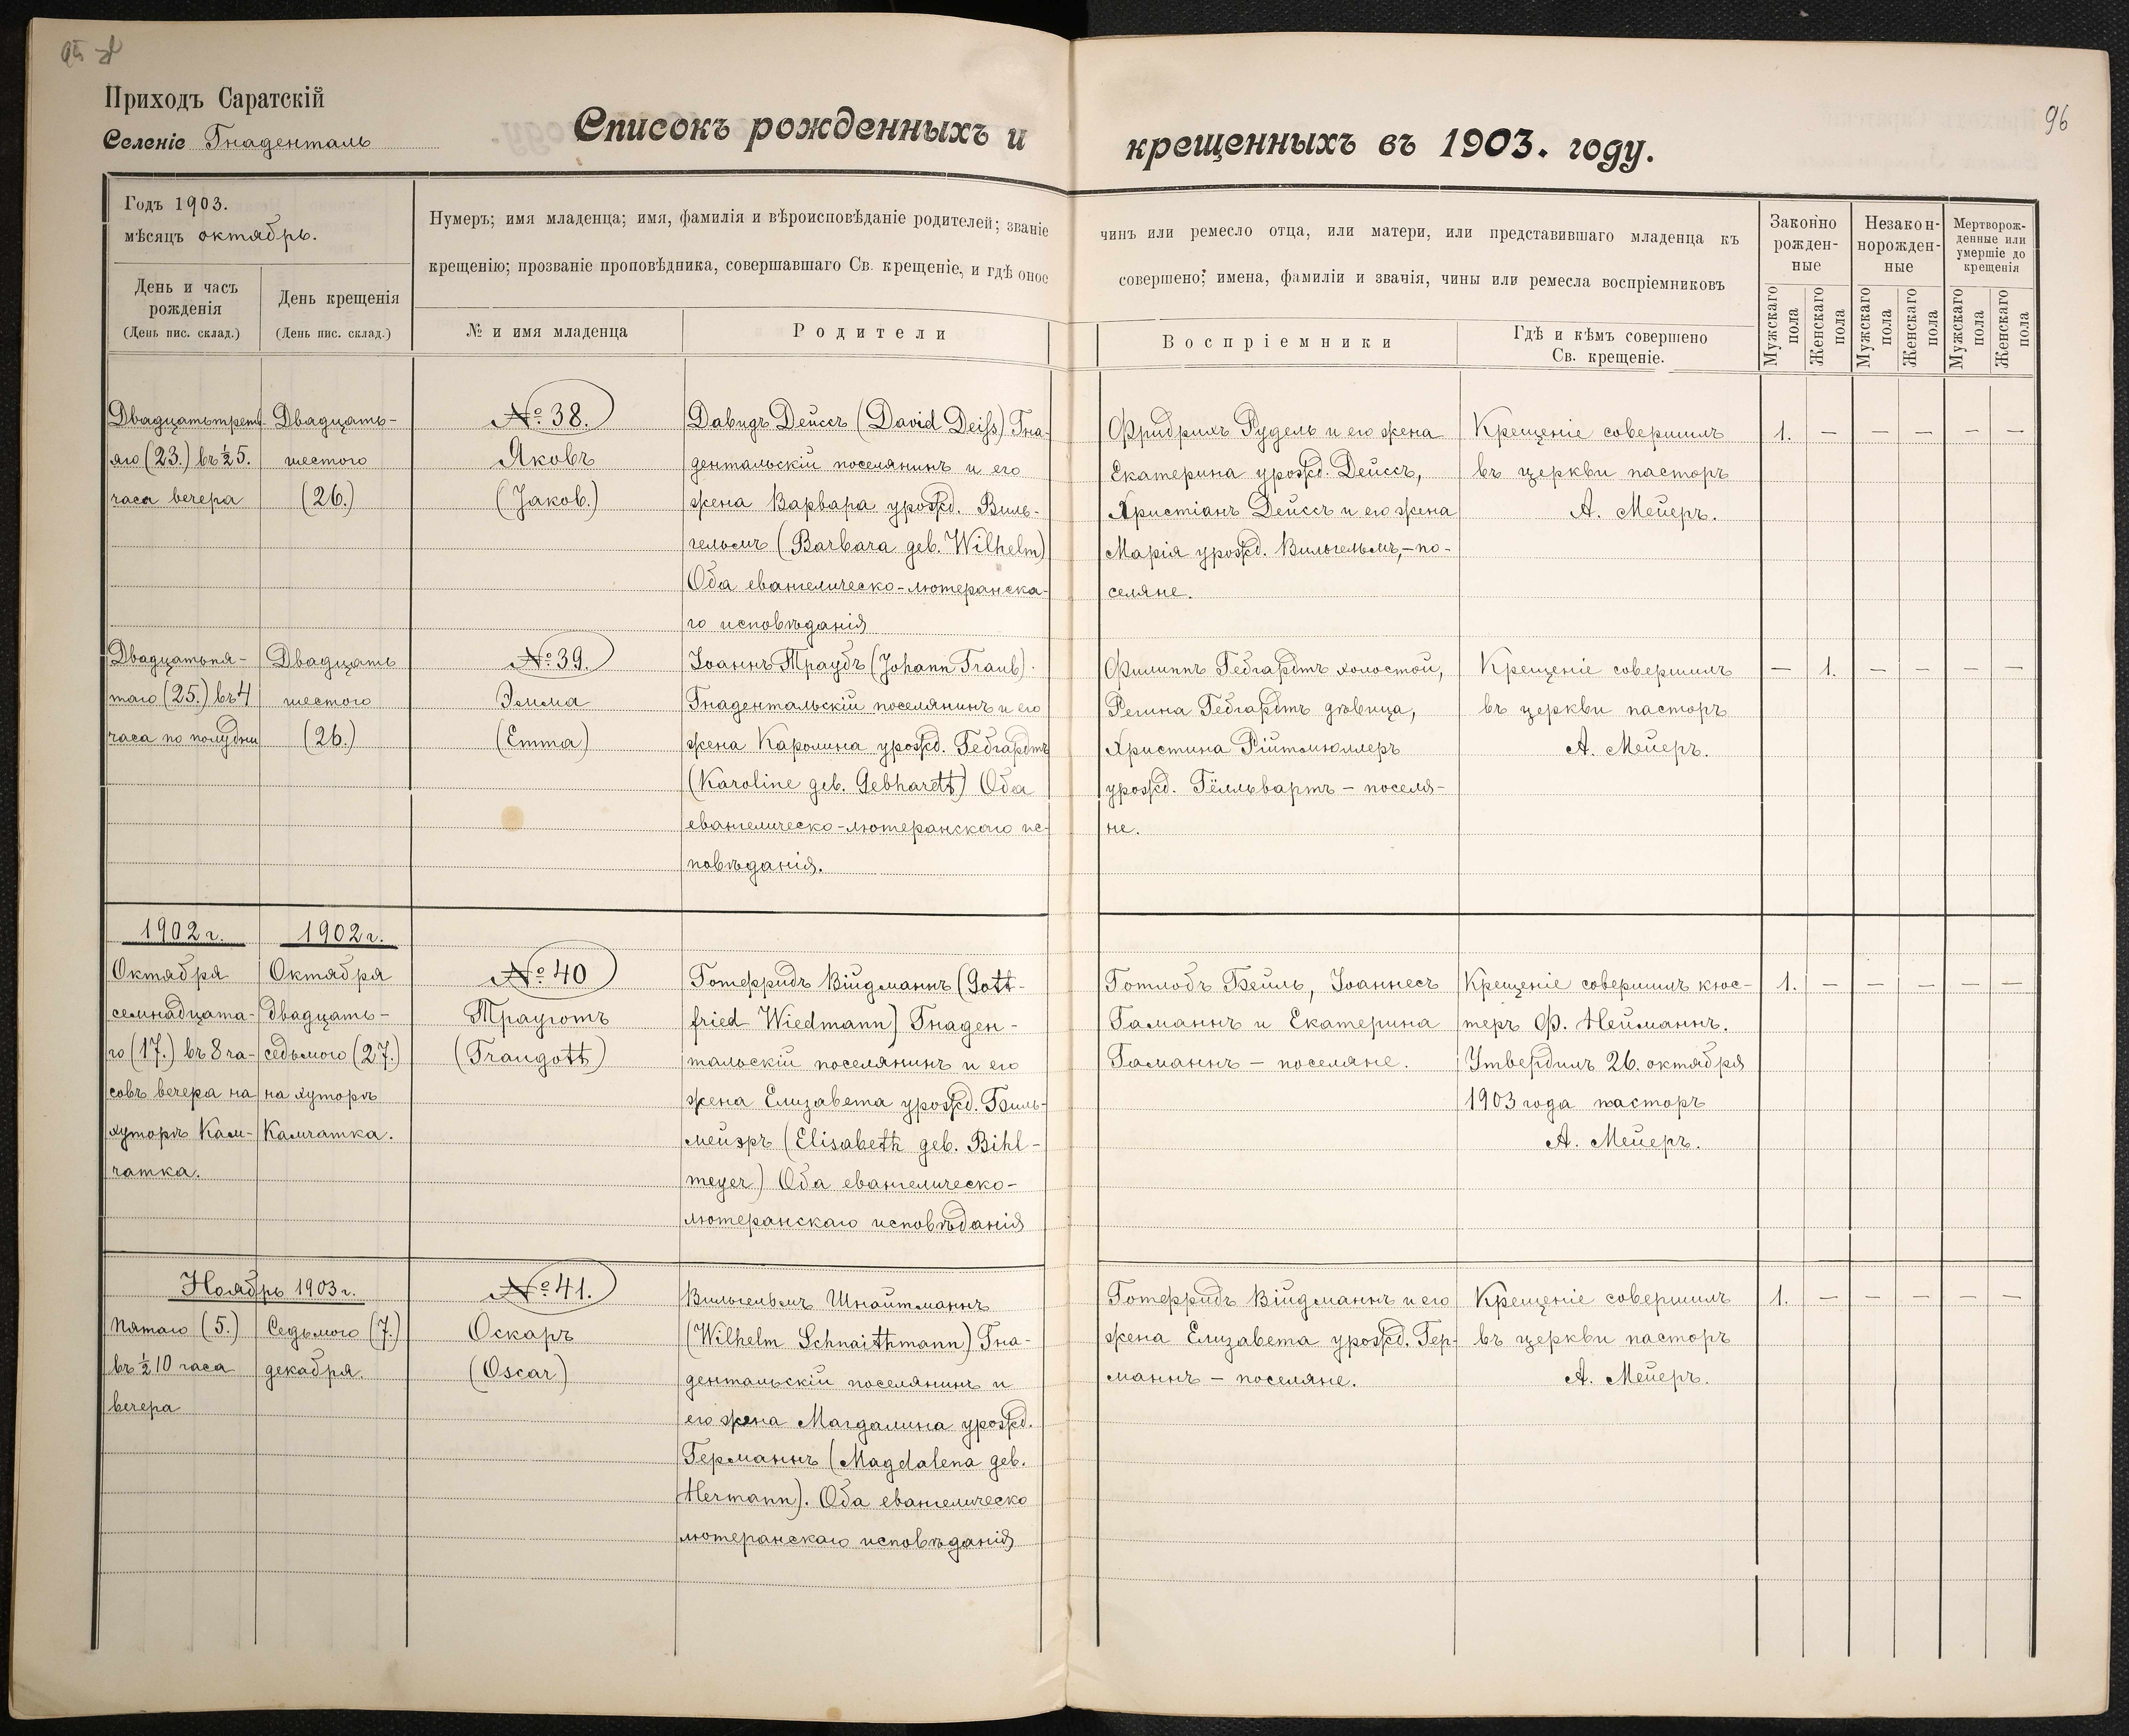 96
Приходъ Саратскій
Селеніе Гнаденталь
Списокъ рожденныхъ и крещенныхъ въ 1903. году.
Годъ 1903.
мѣсяцъ октябрь.
День и часъ
рожденія
(День пис. склад.)
День крещенія
(День пис. склад.)
Нумеръ; имя младенца; имя, фамилія и вѣроисповѣданіе родителей; званіе
чинъ или ремесло отца, или матери, или представившаго младенца къ
крещенію; прозваніе проповѣдника, совершавшаго Св. крещеніе, и гдѣ оное
совершено; имена, фамиліи и званія, чины или ремесла воспріемниковъ
№ и имя младенца
Родители
Воспріемники
Гдѣ и кѣмъ совершено
Св. крещеніе.
Законно
рожден-
ные
Незакон-
норожден-
ные
Мертворож-
денные или
умершіе до
крещенія
Мужскаго
пола
Женскаго
пола
Мужскаго
пола
Женскаго
пола
Мужскаго
пола
Женскаго
пола
Двадцатьтреть-
яго (23.) въ ½ 5.
часа вечера
Двадцать-
шестого
(26.)
№ 38.
Яковъ
(Jakob.)
Давидъ Дейссъ (David Deiß) Гна-
дентальскій поселянинъ и его
жена Варвара урожд. Виль-
гельмъ (Barbara geb. Wilhelm)
Оба евангелическо-лютеранска-
го исповѣданія
Фридрихъ Рудель и его жена
Екатерина урожд. Дейссъ,
Христіанъ Дейссъ и его жена
Марія урожд. Вильгельмъ,-по-
селяне.
Крещеніе совершилъ
въ церкви пасторъ
А. Мейеръ.
1. — — — — —
Двадцатьпя-
таго (25.) въ 4
часа по полудни
Двадцать
шестого
(26.)
№ 39.
Эмма
(Emma)
Іоаннъ Траубъ (Johann Traub).
Гнадентальскій поселянинъ и его
жена Каролина урожд. Гебгардтъ
(Karoline geb. Gebhardt) Оба
евангелическо-лютеранскаго ис-
повѣданія.
Филиппъ Гебгардтъ холостой,
Регина Гебгардтъ дѣвица,
Христина Рійтмюллеръ
урожд. Гёлльвартъ - поселя-
не.
Крещеніе совершилъ
въ церкви пасторъ
А. Мейеръ.
— 1. — — — —
1902 г.
Октября
семнадцата-
го (17.) въ 8 ча-
совъ вечера на
хуторѣ Кам-
чатка.
1902 г.
Октября
двадцать-
седьмого (27.)
на хуторѣ
Камчатка.
№ 40
Трауготъ
(Traugott)
Готфридъ Відманнъ (Gott-
fried Wiedmann) Гнаден-
тальскій поселянинъ и его
жена Елизавета урожд. Биль-
мейэръ (Elisabeth geb. Bihl-
meyer) Оба евангелическо-
лютеранскаго исповѣданія
Готлобъ Бейль, Іоаннесъ
Гаманнъ и Екатерина
Гаманнъ - поселяне.
Крещеніе совершилъ кюс-
теръ Ф. Нейманнъ.
Утвердилъ 26. октября
1903 года пасторъ
А. Мейеръ.
1. — — — — —
Ноябрь 1903 г.
Пятаго (5.)
въ ½ 10 часа
вечера
Седьмого (7.)
декабря.
№ 41.
Оскаръ
(Oscar)
Вильгельмъ Шнайтманнъ
(Wilhelm Schnaithmann) Гна-
дентальскій поселянинъ и
его жена Магдалина урожд.
Германнъ (Magdalena geb.
Hermann). Оба евангелическо
лютеранскаго исповѣданія
Готфридъ Відманнъ и его
жена Елизавета урожд. Гер-
маннъ - поселяне.
Крещеніе совершилъ
въ церкви пасторъ
А. Мейеръ.
1. — — — — —